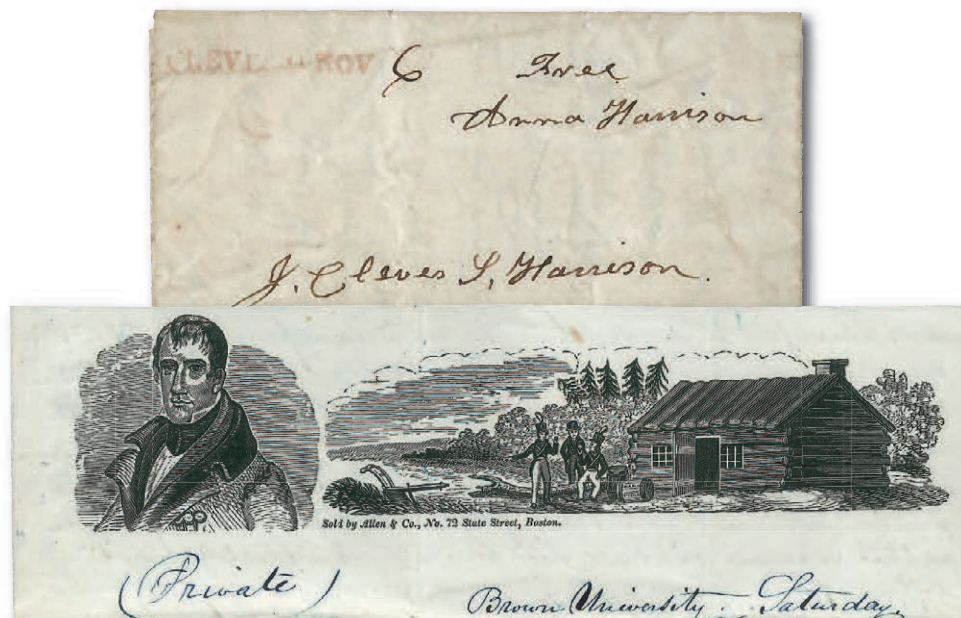 NOV 6 Free
Anna Harrison
J. Cleves S. Harrison.
Sold by Allen & Co., No. 72 State Street, Boston.
(Private)
Brown University. Saturday.